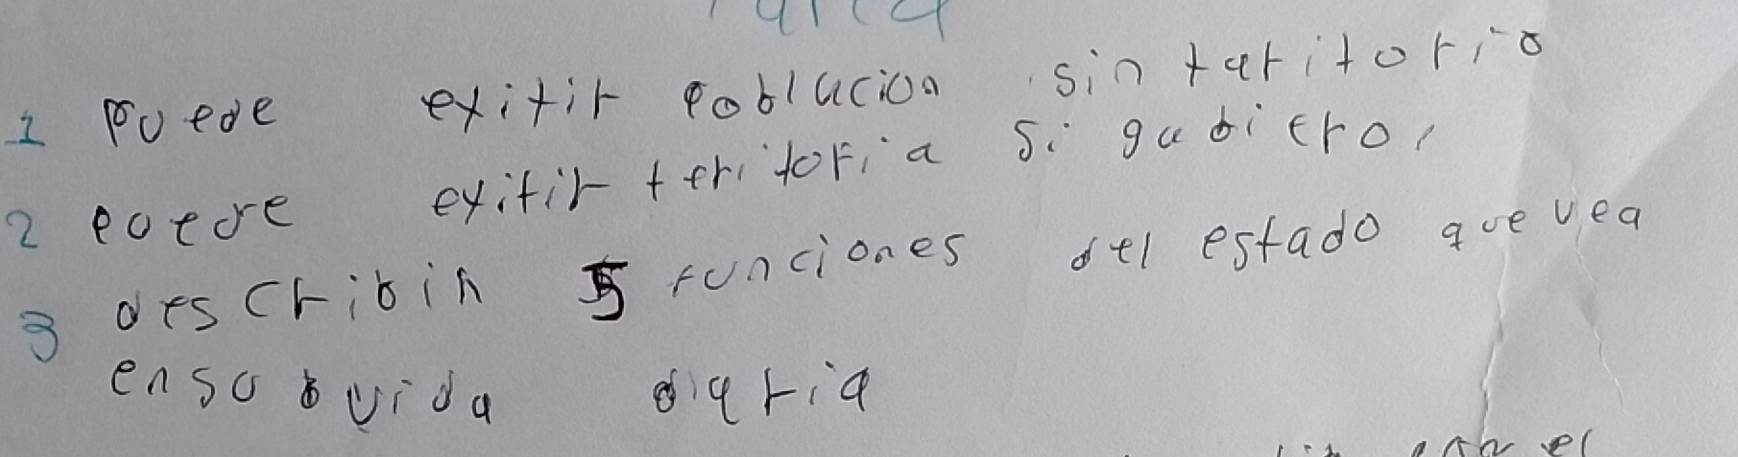 1 puede exitir poblacion sin taritorio
2 puede exitir teritoria si gabiero,
3 describir 5 funciones del estado que vea
en su vida diaria